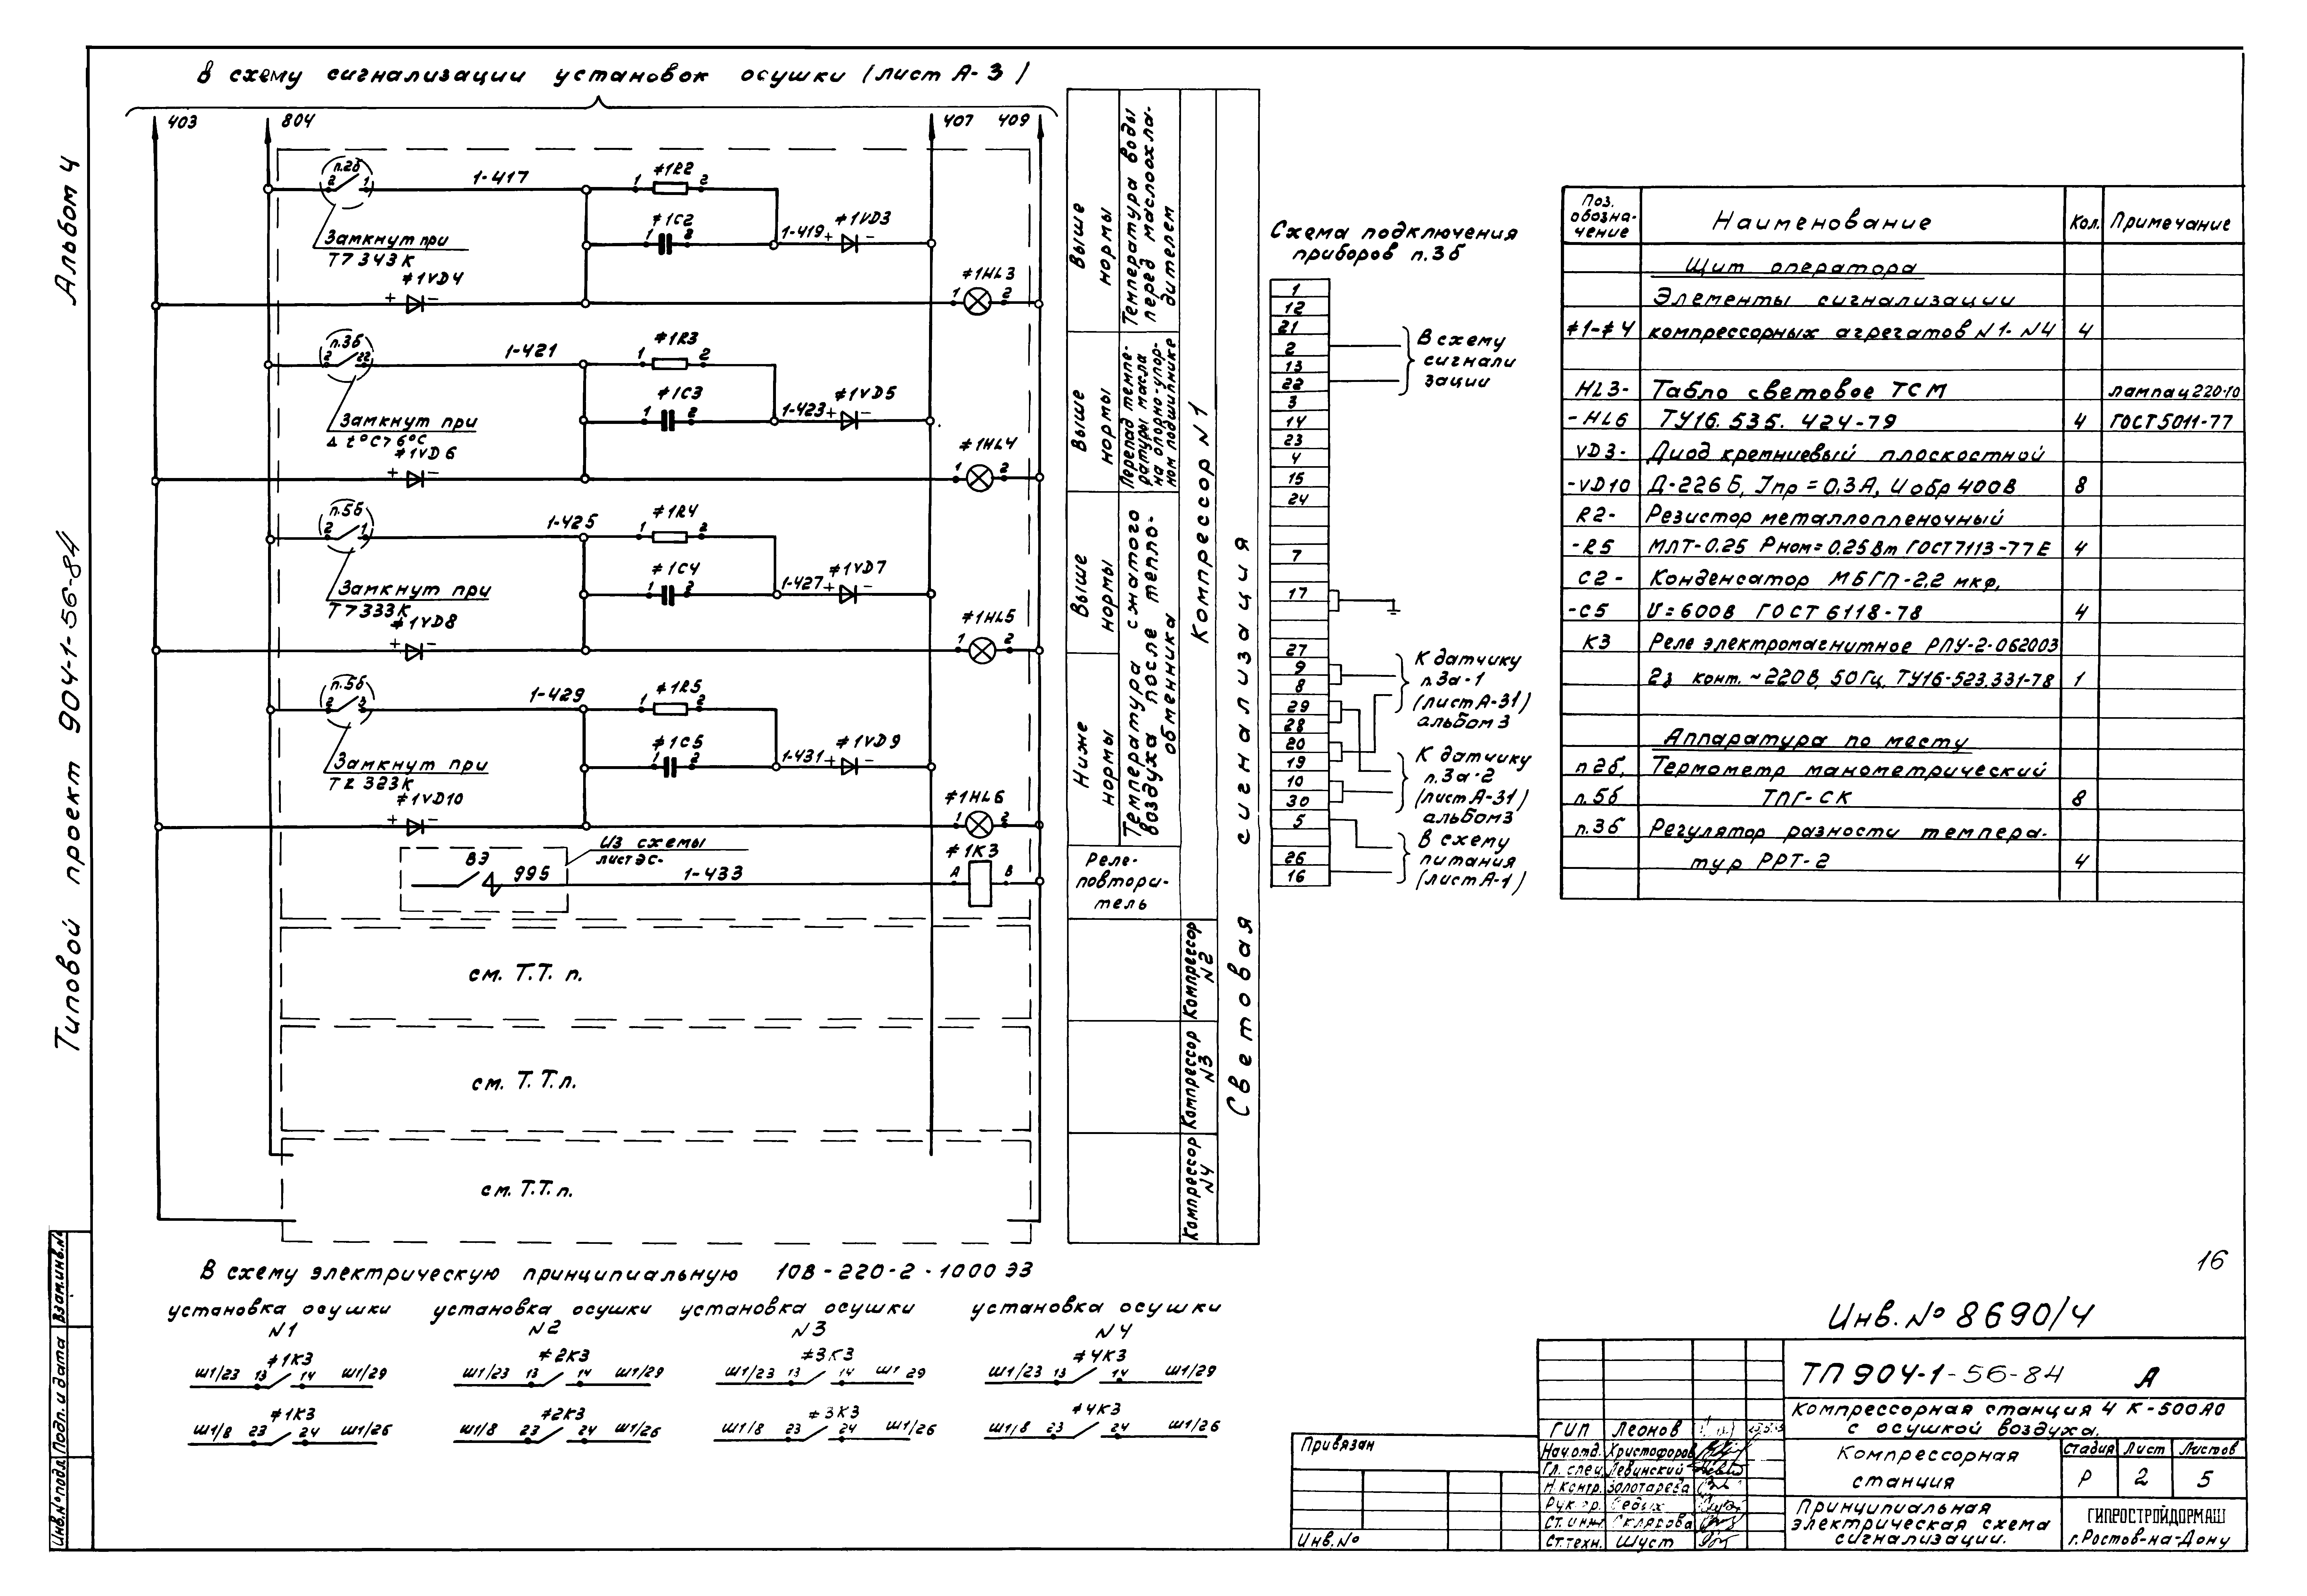 Альбом 4
Типовой проект 904-1-56-84
В схему сигнализации установок осушки (лист А-3)
403
804
407
409
п.2б
2
1
1-417
≠1R2
1
2
≠1C2
1
2
1-419
+
≠1VD3
-
Замкнут при
Т>343К
≠1VD4
+
-
≠1HL3
1
2
п.3б
2
22
1-421
≠1R3
1
2
≠1C3
1
2
1-423
+
≠1VD5
-
Замкнут при
Δt°C>6°C
≠1VD6
+
-
≠1HL4
1
2
п.5б
2
1
1-425
≠1R4
1
2
≠1C4
1
2
1-427
+
≠1VD7
-
Замкнут при
Т>333К
≠1VD8
+
-
≠1HL5
1
2
п.5б
2
3
1-429
≠1R5
1
2
≠1C5
1
2
1-431
+
≠1VD9
-
Замкнут при
Т≤323К
≠1VD10
+
-
≠1HL6
1
2
ВЭ
995
Из схемы
лист ЭС-
1-433
≠1К3
А
В
см. Т.Т. п.
см. Т.Т.п.
см. Т.Т.п.
Выше нормы
Температура воды
перед маслоохла-
дителем
Выше нормы
Перепад темпе-
ратуры масла
на опорно-упор-
ном подшипнике
Выше нормы
Ниже нормы
Температура сжатого
воздуха после тепло-
обменника
Реле-
повтори-
тель
Компрессор N1
Компрессор N2
Компрессор N3
Компрессор N4
Световая сигнализация
Схема подключения
приборов п.3б
1
12
21
2
13
22
3
14
23
4
15
24
7
17
27
9
8
29
28
20
19
10
30
5
26
16
В схему
сигнали
зации
К датчику
п.3а-1
(лист А-31)
альбом 3
К датчику
п.3а-2
(лист А-31)
альбом 3
В схему
питания
(лист А-1)
Поз. обозна-чение Наименование Кол. Примечание
Щит оператора
Элементы сигнализации
≠1-≠4 компрессорных агрегатов N1-N4 4
HL3- Табло световое ТСМ лампа ц220-10
-HL6 ТУ16.535.424-79 4 ГОСТ5011-77
VD3- Диод кремниевый плоскостной
-VD10 Д-226Б, Iпр=0,3А, Uобр 400В 8
R2- Резистор металлопленочный
-R5 МЛТ-0.25 Рном=0.25Вт ГОСТ7113-77Е 4
С2- Конденсатор МБГП-2.2 мкф,
-С5 U=600В ГОСТ 6118-78 4
К3 Реле электромагнитное РПУ-2-062003
2з конт. ~220В, 50Гц, ТУ16-523.331-78 1
Аппаратура по месту
п.2б, Термометр манометрический
п.5б ТПГ-СК 8
п.3б Регулятор разности темпера-
тур РРТ-2 4
В схему электрическую принципиальную 10В-220-2-1000 ЭЗ
установка осушки N1
установка осушки N2
установка осушки N3
установка осушки N4
Ш1/23 13 ≠1К3 14 Ш1/29
Ш1/23 13 ≠2К3 14 Ш1/29
Ш1/23 13 ≠3К3 14 Ш1 29
Ш1/23 13 ≠4К3 14 Ш1/29
Ш1/8 23 ≠1К3 24 Ш1/26
Ш1/8 23 ≠2К3 24 Ш1/26
Ш1/8 23 ≠3К3 24 Ш1/26
Ш1/8 23 ≠4К3 24 Ш1/26
16
Инв. № 8690/4
ТП 904-1-56-84 А
Компрессорная станция 4 К-500А0
с осушкой воздуха.
Компрессорная
станция
Стадия Лист Листов
Р 2 5
Принципиальная
электрическая схема
сигнализации.
ГИПРОСТРОЙДОРМАШ
г.Ростов-на-Дону
ГИП Леонов
Нач.отд. Христофоров
Гл. спец. Левинский
Н.контр. Золотарева
Рук.гр. Седых
Ст.инж. Склярова
Ст.техн. Шуст
Привязан
Инв.№
Инв.№ подл.
Подп. и дата
Взам.инв.№